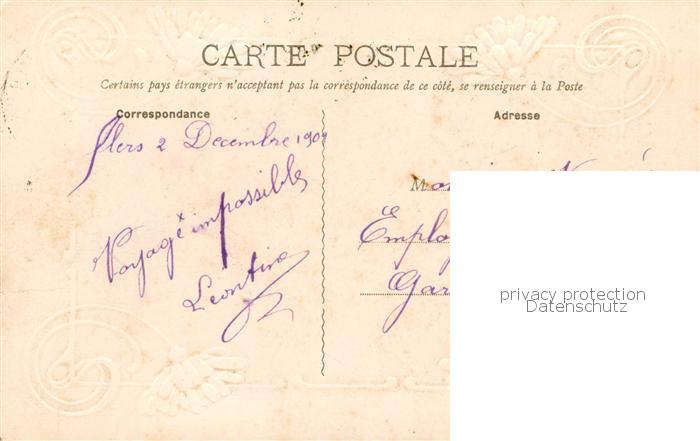 CARTE POSTALE
Certains pays étrangers n'acceptant pas la correspondance de ce côté, se renseigner à la Poste
Correspondance
Adresse
Flers 2 Decembre 1907
Voyage impossible
Léontine
M
Emplo
Gar
privacy protection
Datenschutz